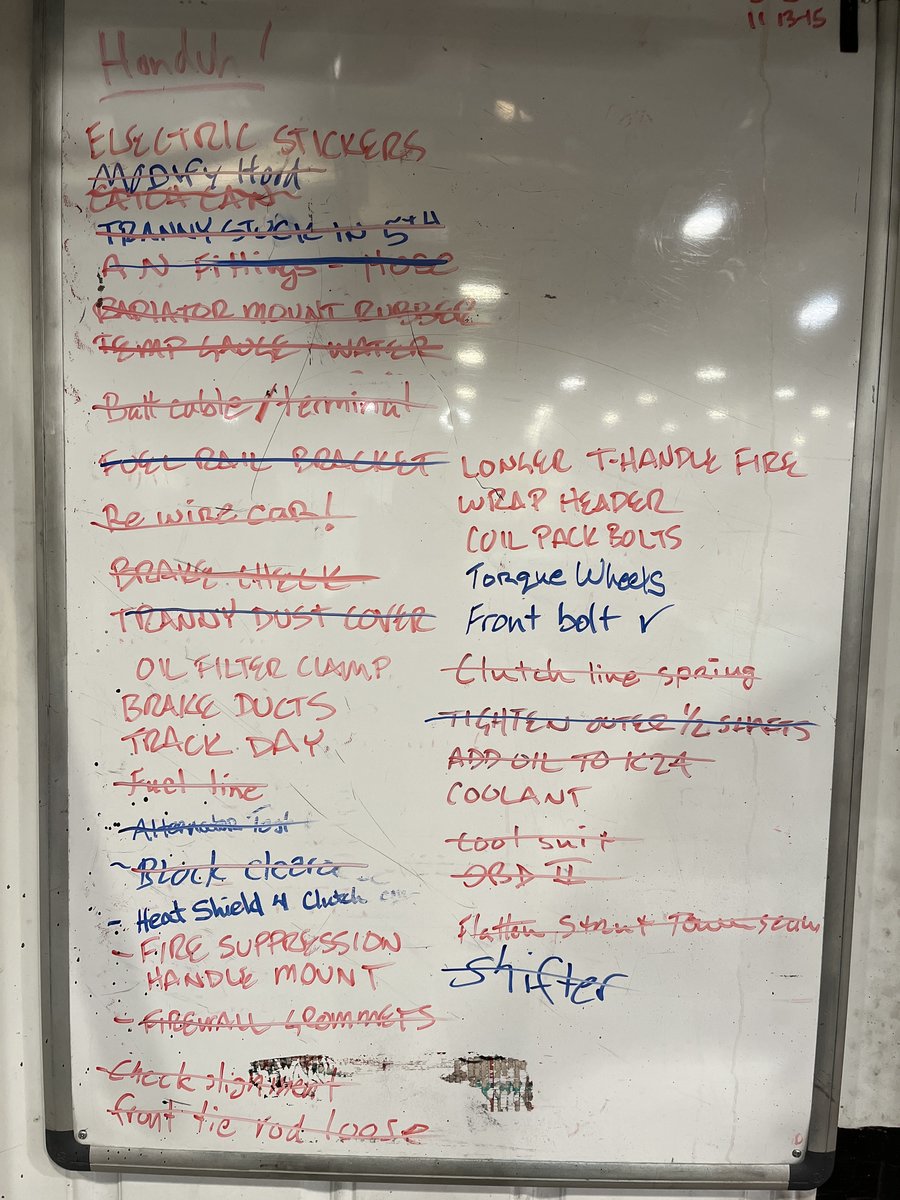 11 13-15
HondUh!
ELECTRIC STICKERS
MODIFY Hood
CATCH CAN
TRANNY STUCK IN 5TH
AN Fittings - HOSE
RADIATOR MOUNT RUBBER
TEMP GAUGE WATER
Batt cable / terminal
FUEL RAIL BRACKET
Re wire car!
BRAKE CHECK
TRANNY DUST COVER
OIL FILTER CLAMP
BRAKE DUCTS
TRACK DAY
Fuel line
Alternator Test
~ Block
- Heat Shield 4 Clutch
- FIRE SUPPRESSION
HANDLE MOUNT
- FIREWALL GROMMETS
Check alignment
front tie rod loose
LONGER T-HANDLE FIRE
WRAP HEADER
COIL PACK BOLTS
Torque Wheels
Front bolt ✓
Clutch line spring
TIGHTEN OUTER 1/2 SHAFTS
ADD OIL TO K24
COOLANT
cool suit
OBD II
Flatten Strut Tower seam
Shifter